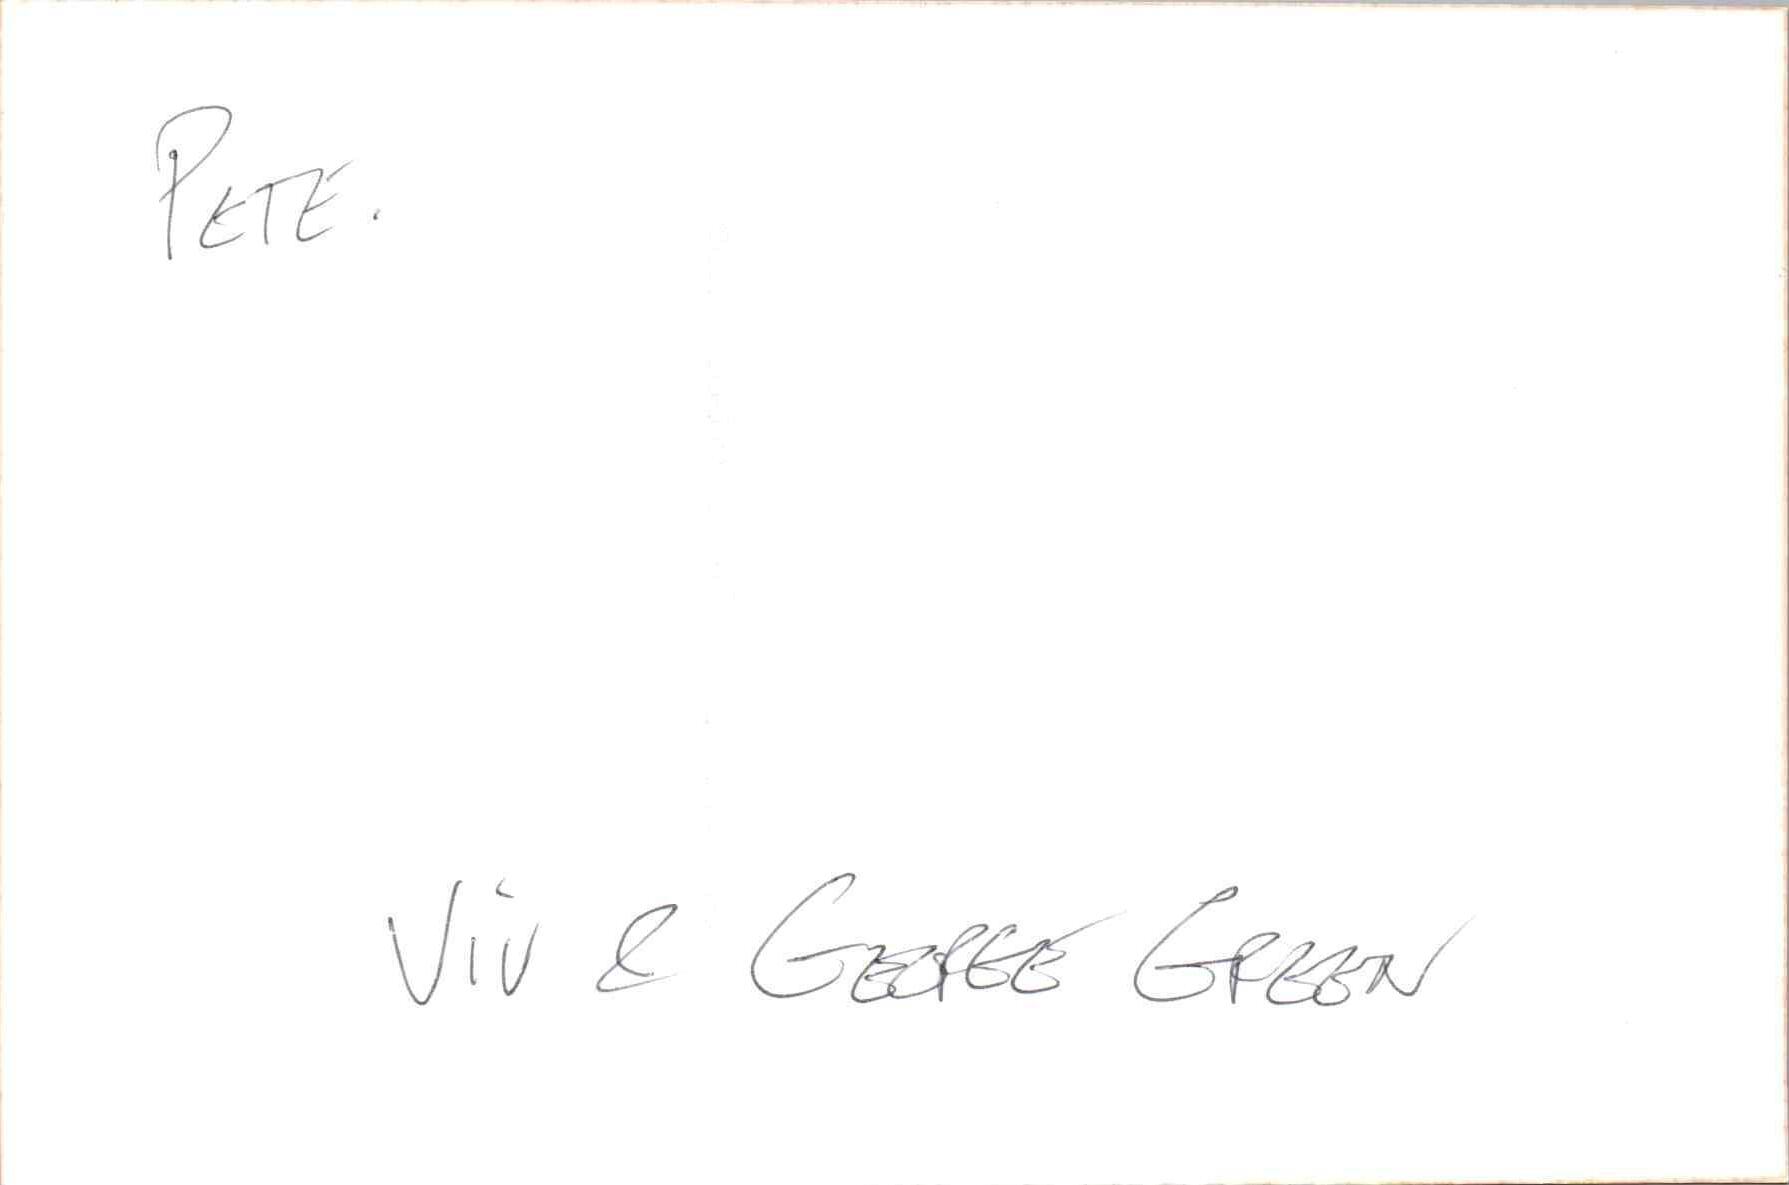 PETE.
Viv & GEORGE GREEN